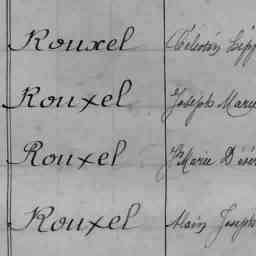 Rouxel Célestin Hipp
Rouxel Joseph Marie
Rouxel J Marie Désir
Rouxel Alain Joseph